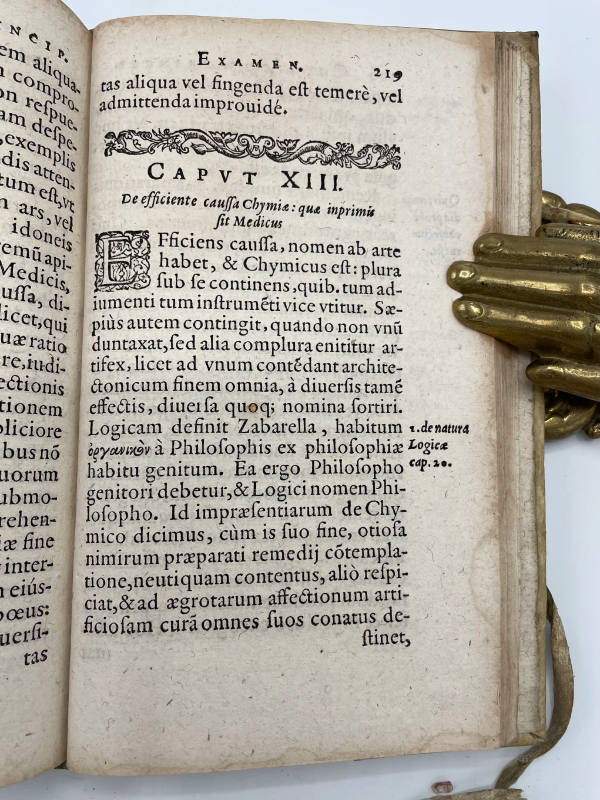 NCIP.
em aliqua-
n compro-
on respue-
am despe-
,exemplis
dis atten-
tum est,vt
n ars, vel
idoneis
remũ api-
Medicis,
ussa, di-
licet,qui
uæ ratio
re,iudi-
ectionis
tionem
pliciore
bus nõ
uorum
ubmo-
rehen-
iæ fine
r inter-
n eiús-
pœus:
uersi-
tas
EXAMEN. 219
tas aliqua vel fingenda est temerè, vel
admittenda improuidé.
CAPVT XIII.
De efficiente caussa Chymiæ: quæ inprimis
sit Medicus
EFficiens caussa, nomen ab arte
habet, & Chymicus est: plura
sub se continens, quib. tum ad-
iumenti tum instrumẽti vice vtitur. Sæ-
piùs autem contingit, quando non vnũ
duntaxat, sed alia complura enititur ar-
tifex, licet ad vnum contẽdant archite-
ctonicum finem omnia, à diuersis tamẽ
effectis, diuersa quoq; nomina sortiri.
Logicam definit Zabarella, habitum
ὀργανικὸν à Philosophis ex philosophiæ
habitu genitum. Ea ergo Philosopho
genitori debetur, & Logici nomen Phi-
losopho. Id impræsentiarum de Chy-
mico dicimus, cùm is suo fine, otiosa
nimirum præparati remedij cõtempla-
tione, neutiquam contentus, aliò respi-
ciat, & ad ægrotarum affectionum arti-
ficiosam curã omnes suos conatus de-
stinet,
1. de natura
Logicæ
cap. 20.